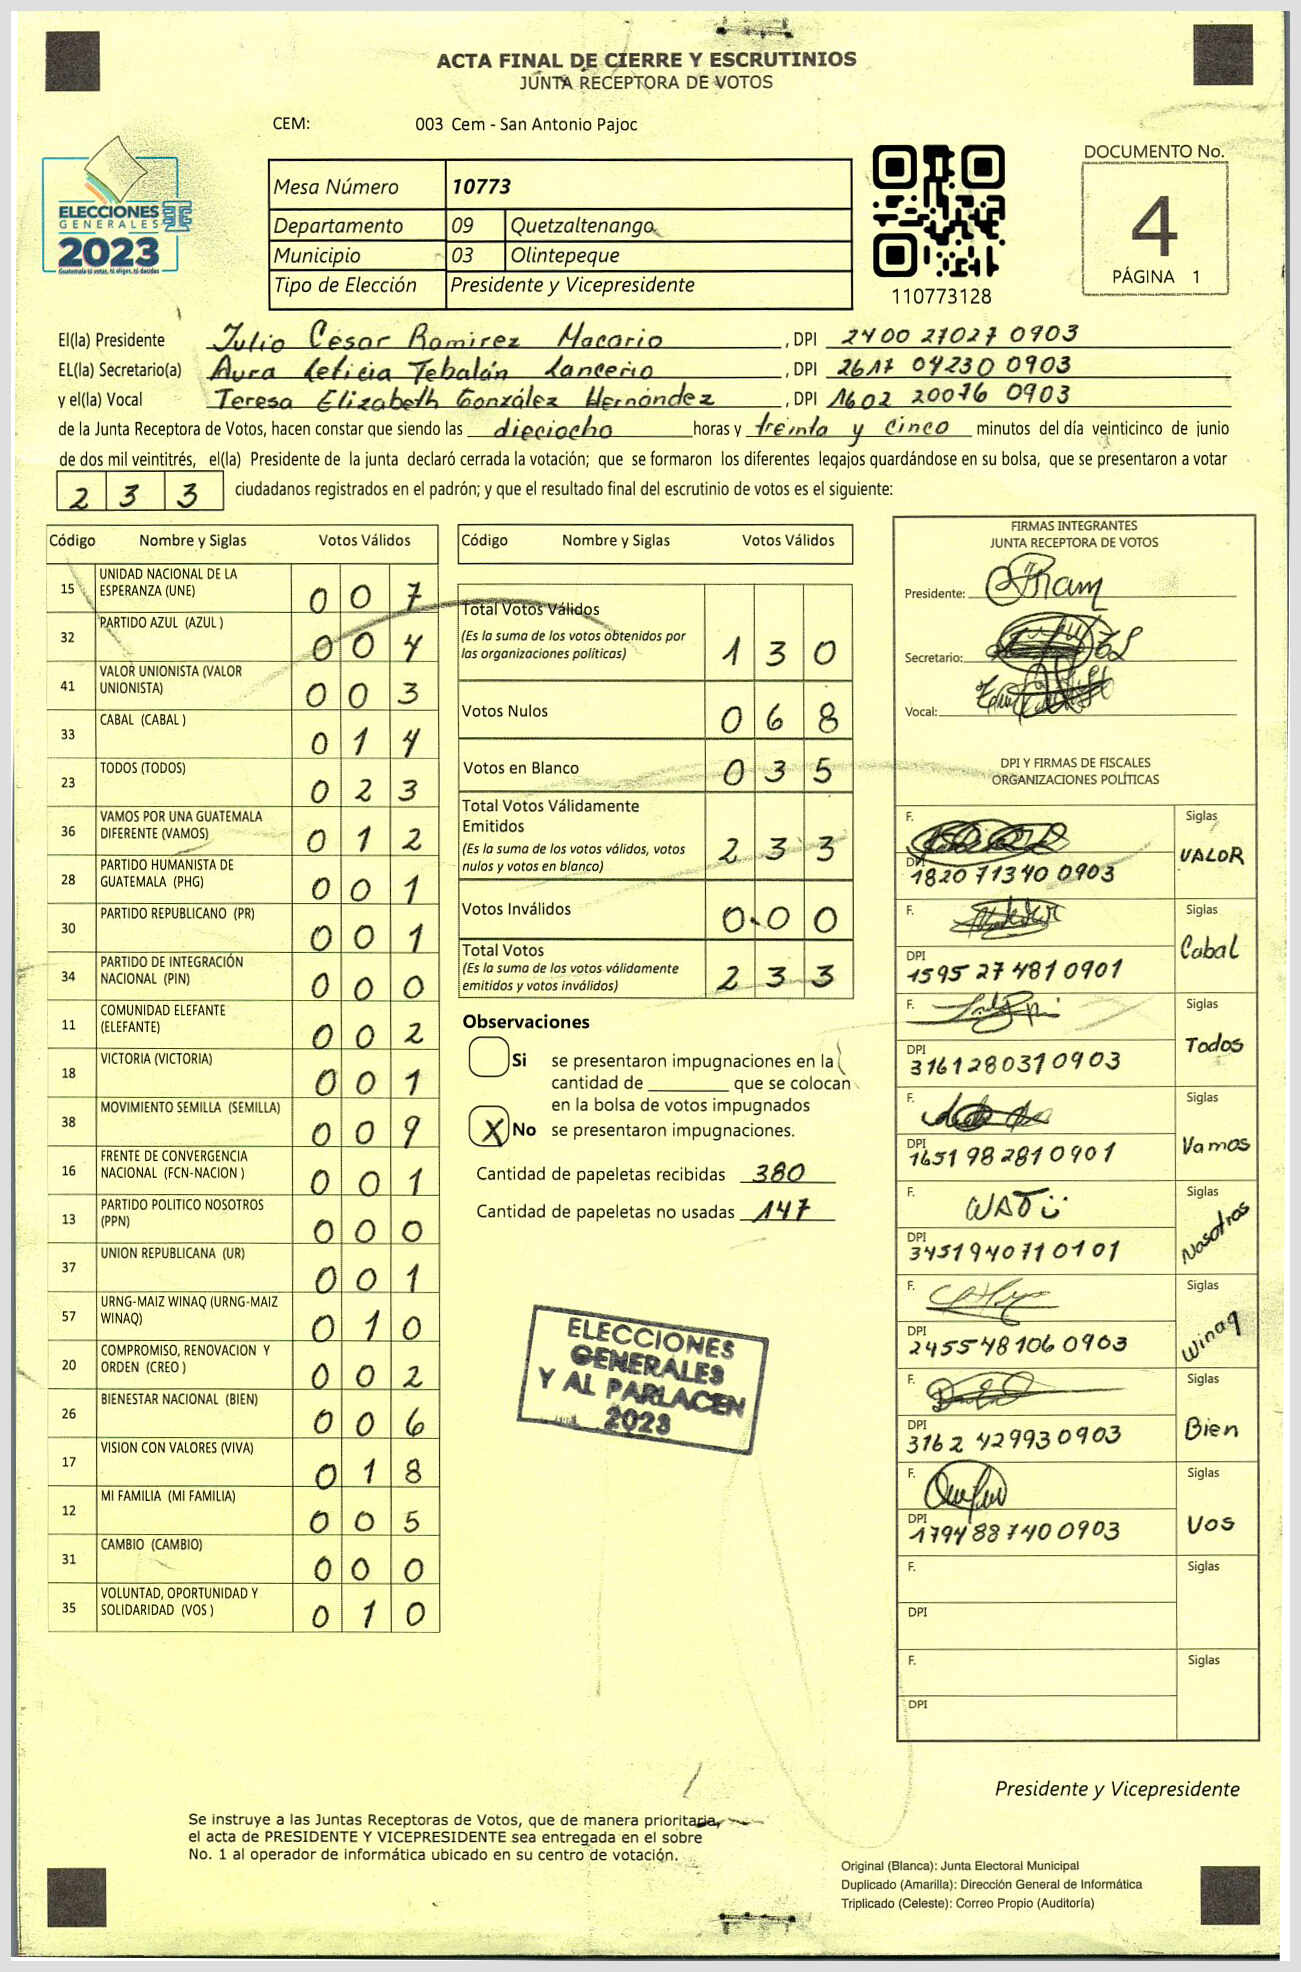 ACTA FINAL DE CIERRE Y ESCRUTINIOS
JUNTA RECEPTORA DE VOTOS
CEM: 003 Cem - San Antonio Pajoc
ELECCIONES
GENERALES
2023
Guatemala tú votas, tú eliges, tú decides
Mesa Número 10773
Departamento 09 Quetzaltenango
Municipio 03 Olintepeque
Tipo de Elección Presidente y Vicepresidente
110773128
DOCUMENTO No.
4
PÁGINA 1
El(la) Presidente Julio César Ramirez Macario , DPI 2400 27027 0903
EL(la) Secretario(a) Aura Leticia Tebalán Lancerio , DPI 2617 04230 0903
y el(la) Vocal Teresa Elizabeth González Hernández , DPI 1602 20076 0903
de la Junta Receptora de Votos, hacen constar que siendo las dieciocho horas y treinta y cinco minutos del día veinticinco de junio
de dos mil veintitrés, el(la) Presidente de la junta declaró cerrada la votación; que se formaron los diferentes legajos guardándose en su bolsa, que se presentaron a votar
2 3 3 ciudadanos registrados en el padrón; y que el resultado final del escrutinio de votos es el siguiente:
Código Nombre y Siglas Votos Válidos
15 UNIDAD NACIONAL DE LA ESPERANZA (UNE) 0 0 7
32 PARTIDO AZUL (AZUL ) 0 0 4
41 VALOR UNIONISTA (VALOR UNIONISTA) 0 0 3
33 CABAL (CABAL ) 0 1 4
23 TODOS (TODOS) 0 2 3
36 VAMOS POR UNA GUATEMALA DIFERENTE (VAMOS) 0 1 2
28 PARTIDO HUMANISTA DE GUATEMALA (PHG) 0 0 1
30 PARTIDO REPUBLICANO (PR) 0 0 1
34 PARTIDO DE INTEGRACIÓN NACIONAL (PIN) 0 0 0
11 COMUNIDAD ELEFANTE (ELEFANTE) 0 0 2
18 VICTORIA (VICTORIA) 0 0 1
38 MOVIMIENTO SEMILLA (SEMILLA) 0 0 9
16 FRENTE DE CONVERGENCIA NACIONAL (FCN-NACION ) 0 0 1
13 PARTIDO POLITICO NOSOTROS (PPN) 0 0 0
37 UNION REPUBLICANA (UR) 0 0 1
57 URNG-MAIZ WINAQ (URNG-MAIZ WINAQ) 0 1 0
20 COMPROMISO, RENOVACION Y ORDEN (CREO ) 0 0 2
26 BIENESTAR NACIONAL (BIEN) 0 0 6
17 VISION CON VALORES (VIVA) 0 1 8
12 MI FAMILIA (MI FAMILIA) 0 0 5
31 CAMBIO (CAMBIO) 0 0 0
35 VOLUNTAD, OPORTUNIDAD Y SOLIDARIDAD (VOS ) 0 1 0
Código Nombre y Siglas Votos Válidos
Total Votos Válidos
(Es la suma de los votos obtenidos por
las organizaciones políticas) 1 3 0
Votos Nulos 0 6 8
Votos en Blanco 0 3 5
Total Votos Válidamente
Emitidos
(Es la suma de los votos válidos, votos
nulos y votos en blanco) 2 3 3
Votos Inválidos 0 0 0
Total Votos
(Es la suma de los votos válidamente
emitidos y votos inválidos) 2 3 3
Observaciones
Si se presentaron impugnaciones en la
cantidad de ________ que se colocan
en la bolsa de votos impugnados
X No se presentaron impugnaciones.
Cantidad de papeletas recibidas 380
Cantidad de papeletas no usadas 147
ELECCIONES
GENERALES
Y AL PARLACEN
2023
FIRMAS INTEGRANTES
JUNTA RECEPTORA DE VOTOS
Presidente:
Secretario:
Vocal:
DPI Y FIRMAS DE FISCALES
ORGANIZACIONES POLÍTICAS
F. Siglas
DPI 1820 71340 0903 VALOR
F. Siglas
DPI 1595 27481 0901 Cabal
F. Siglas
DPI 3161 28031 0903 Todos
F. Siglas
DPI 1651 98281 0901 Vamos
F. Siglas
DPI 3451 94071 0101 Nosotros
F. Siglas
DPI 2455 48106 0903 Winaq
F. Siglas
DPI 3162 42993 0903 Bien
F. Siglas
DPI 1794 88740 0903 Vos
F. Siglas
DPI
F. Siglas
DPI
Presidente y Vicepresidente
Se instruye a las Juntas Receptoras de Votos, que de manera prioritaria,
el acta de PRESIDENTE Y VICEPRESIDENTE sea entregada en el sobre
No. 1 al operador de informática ubicado en su centro de votación.
Original (Blanca): Junta Electoral Municipal
Duplicado (Amarilla): Dirección General de Informática
Triplicado (Celeste): Correo Propio (Auditoría)